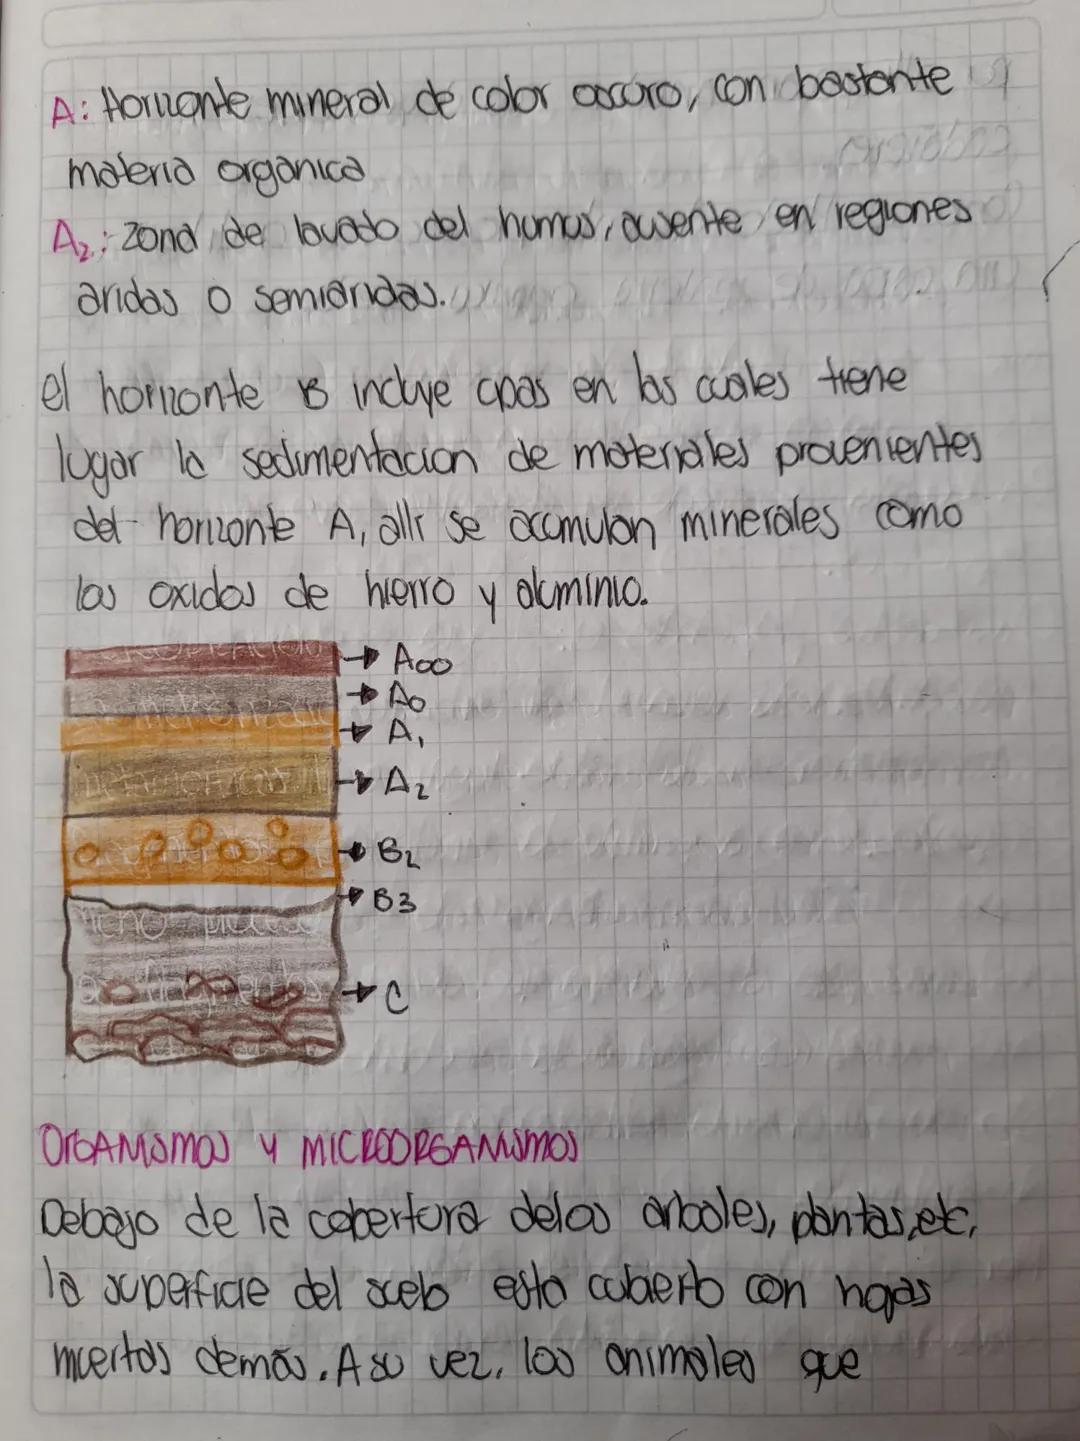 A: Horizonte mineral de color oscuro, con bastante
materia organica
A2: zona de lavado del humus, ausente en regiones
aridas o semiaridas.
el horizonte B incluye cpas en las cuales tiene
lugar la sedimentacion de materiales provenientes
del horizonte A, alli se acumulan minerales como
los oxidos de hierro y aluminio.
A00
A0
A1
A2
B2
B3
C
ORGANISMOS Y MICROORGANISMOS
Debajo de la cobertura delos arboles, plantas, etc,
la superficie del suelo esta cubierto con hojas
muertas demas. A su vez, los animales que